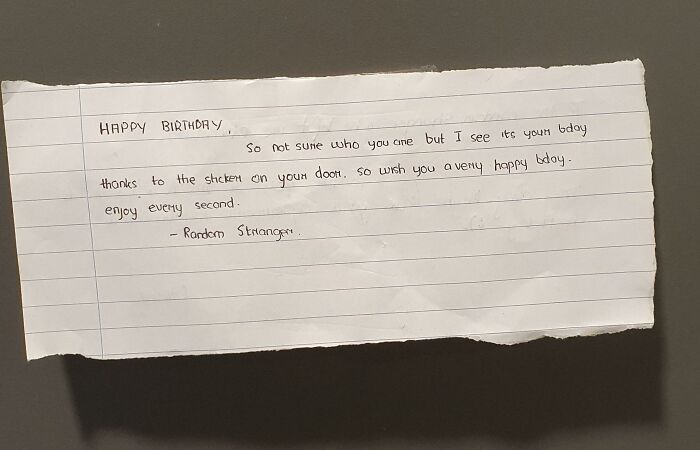 HAPPY BIRTHDAY,
So not sure who you are but I see its your bday
thanks to the sticker on your door. so wish you a very happy bday.
enjoy every second.
- Random Stranger.